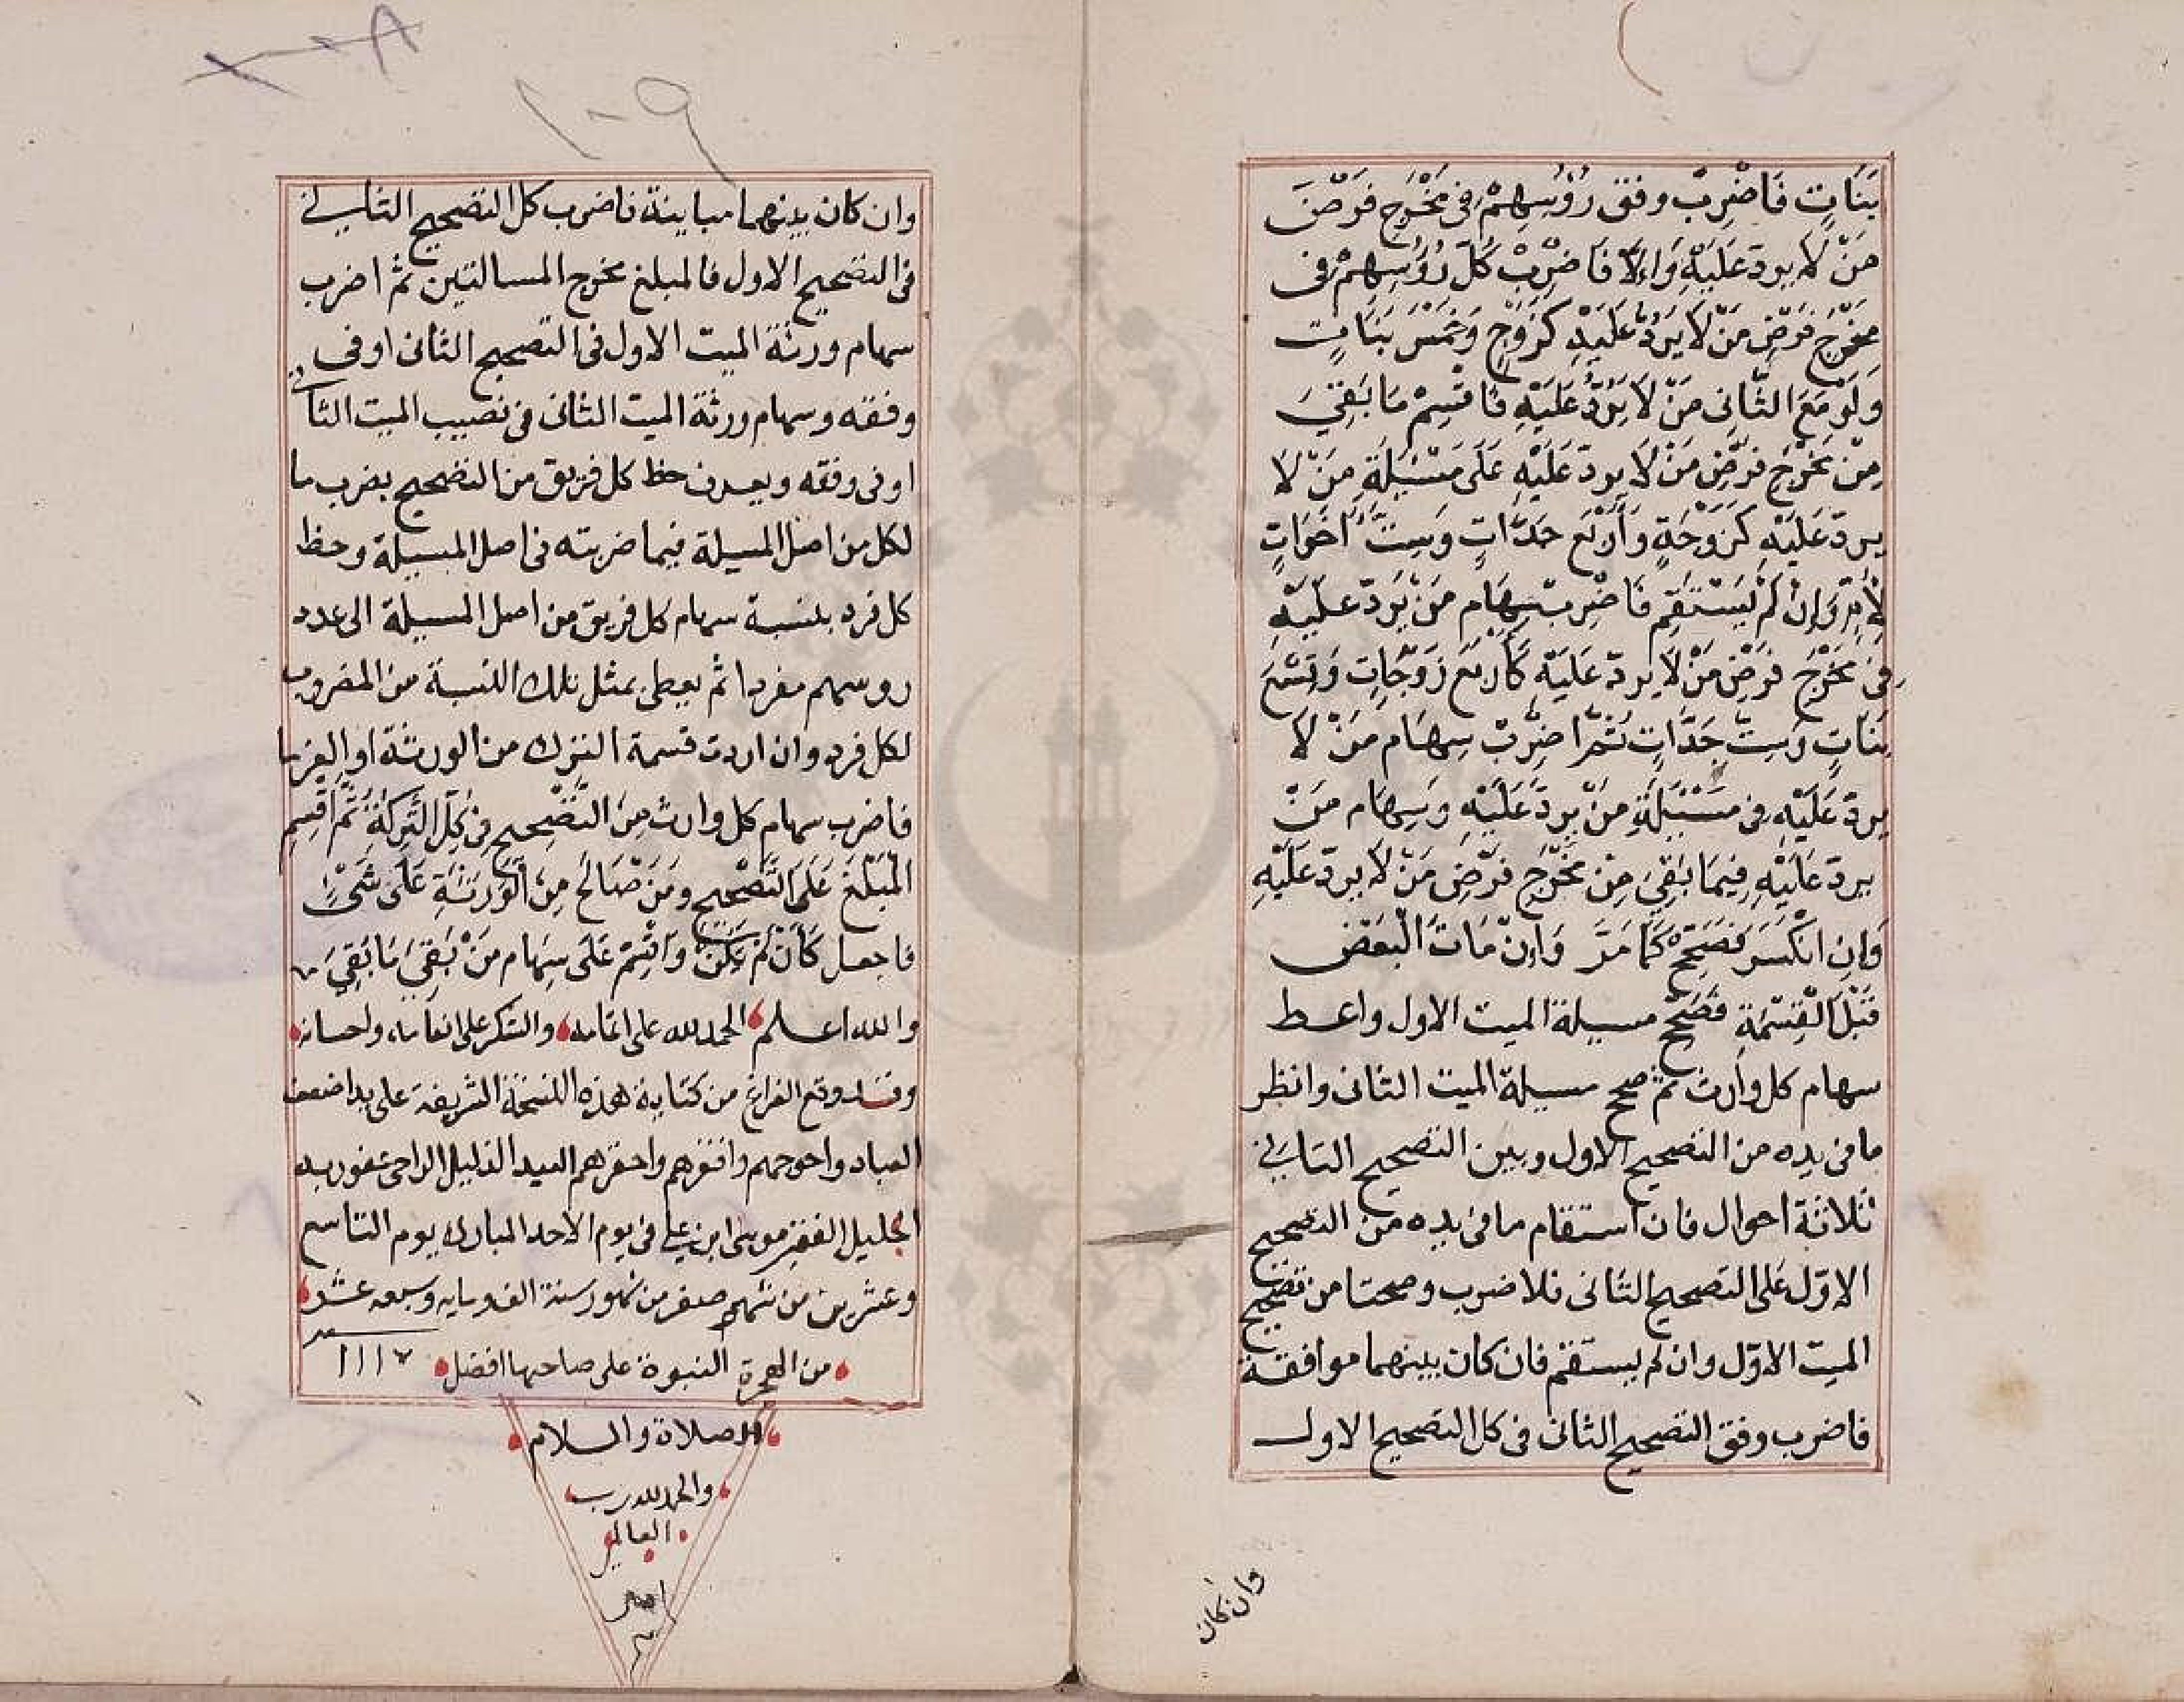 بَنَاتٍ فَاضْرِبْ وفق رُؤُسِهِمْ فِى مَخْرَجِ فَرْضَ
مَنْ لَا يردّ عَلَيْهِ وَاِلَّا فَاضْرِبْ كُلَّ رُؤُسِهِمْ فى
مَخْرَجِ فَرْضِ مَنْ لَا يَرُدُّ عَلَيْهِ كَزَوْجٍ وَخَمْسَ بَنَاتٍ
وَلَوْ مَعَ الثَّانِى مَنْ لَا يَرُدُّ عَلَيْهِ فَاقْسِمْ مَا بَقِيَ
مِنْ مَخْرَجِ فَرْضِ مَنْ لَا يردّ عَلَيْهِ عَلَى مَسْئَلَةِ مَنْ لَا
يردّ عَلَيْهِ كَزَوْجَةٍ وَأَرْبَعَ جَدَّاتٍ وَسِتَّ اَخَوَاتٍ
لِاُمٍّ وَاِنْ لَمْ يَسْتَقِمْ فَاضْرِبْ سِهَام مَنْ يَردّ عَلَيْهِ
فِى مَخْرَجِ فَرْضِ مَنْ لَا يردّ عَلَيْهِ كَأَرْبَعَ زَوْجَاتٍ وَتِسْعَ
بَنَاتٍ وَسِتّ جَدَّاتٍ ثُمَّ اضْرِبْ سِهَام مَنْ لَا
يردّ عَلَيْهِ فى مَسْئَلَةِ مَنْ يردّ عَلَيْهِ وَسِهَام مَنْ
يردّ عَلَيْهِ فِيمَا بَقِيَ مِنْ مَخْرَجِ فَرْضِ مَنْ لَا يردّ عَلَيْهِ
وَاِنِ انْكَسَرَ فَصَحِّحْ كَمَا مَرَّ وَاِنْ مَاتَ الْبَعْض
قَبْلَ الْقِسْمَةِ فَصَحِّحْ مسيلة الميت الاول واعط
سهام كل وارث ثم صحح مسيلة الميت الثانى وانظر
ما فى يده من التصحيح الاول وبين التصحيح الثانى
ثلاثة احوال فان استقام ما فى يده من التصحيح
الاوّل على التصحيح الثانى فلا ضرب وصحتا من تصحيح
الميت الاوّل وان لم يستقم فان كان بينهما موافقة
فاضرب وفق التصحيح الثانى فى كل التصحيح الاول
وان كان
١٠٩
وان كان بينهما مباينة فاضرب كل التصحيح الثانى
فى التصحيح الاول فالمبلغ مخرج المسالتين ثم اضرب
سهام ورثة الميت الاول فى التصحيح الثانى او فى
وفقه وسهام ورثة الميت الثانى فى نصيب الميت الثانى
او فى وفقه ويعرف حظ كل فريق من التصحيح بضرب ما
لكل من اصل المسيلة فيما ضربته فى اصل المسيلة وحظ
كل فرد بنسبة سهام كل فريق من اصل المسيلة الى عدد
روسهم مفردا ثم يعطى بمثل تلك النسبة من المضروب
لكل فرد وان اردت قسمة الترك من الورثة او الغرما
فاضرب سهام كل وارث مِنَ التَّصْحِيحِ فى كُلِّ التَّرِكَةِ ثُمَّ اقْسِمِ
الْمَبْلَغَ عَلَى التَّصْحِيحِ وَمَنْ صَالَحَ مِنَ الْوَرَثَةِ عَلَى شَىْءٍ
فاجعل كَأَنْ لَمْ يَكُنْ وَاقْسِمْ عَلَى سِهَام مَنْ بَقِيَ مَا بَقِيَ
والله اعلم الحمد لله على اتمامه والشكر على انعامه واحسانه
وقد وقع الفراغ من كتابة هذه النسخة الشريفة على يد اضعف
العباد واحوجهم وافقرهم واحقرهم العبد الذليل الراجى عفو ربه
الجليل الفقير موسى ابن على فى يوم الاحد المبارك يوم التاسع
وعشرين من شهر صفر من شهور سنة الف ومايه وسبعه عشر
من الهجرة النبوة على صاحبها افضل ١١١٧
الصلاة والسلام
والحمد لله رب
العالمين
امين